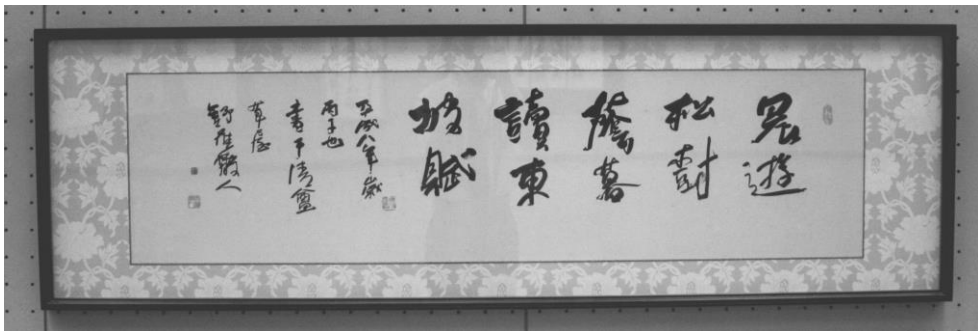 晨遊
松樹
蔭暮
讀東
坡賦
平成八年歳
丙子也
書于清盦
草
散人